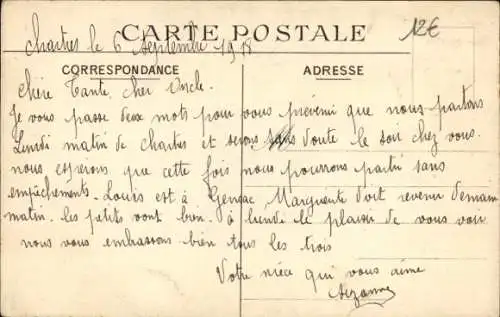 CARTE POSTALE
12€
Chartres le 6 Septembre 1918
CORRESPONDANCE
ADRESSE
Chère Tante, cher Oncle.
Je vous passe deux mots pour vous prévenir que nous partons
Lundi matin de chartres et serons sans doute le soir chez vous.
nous esperons que cette fois nous pourrons partir sans
empêchements. Louis est à Gensac Marguerite doit revenir demain
matin. les petits vont bien. à lundi le plaisir de vous voir
nous vous embrassons bien tous les trois
Votre nièce qui vous aime
Suzanne